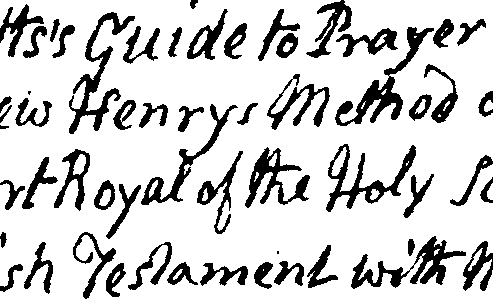 tts's Guide to Prayer
ew Henrys Method o
rt Royal of the Holy Sc
ish Testament with N